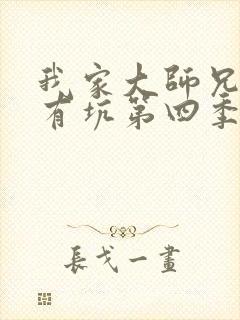 我家大師兄
有坑第四季
長弋一畫